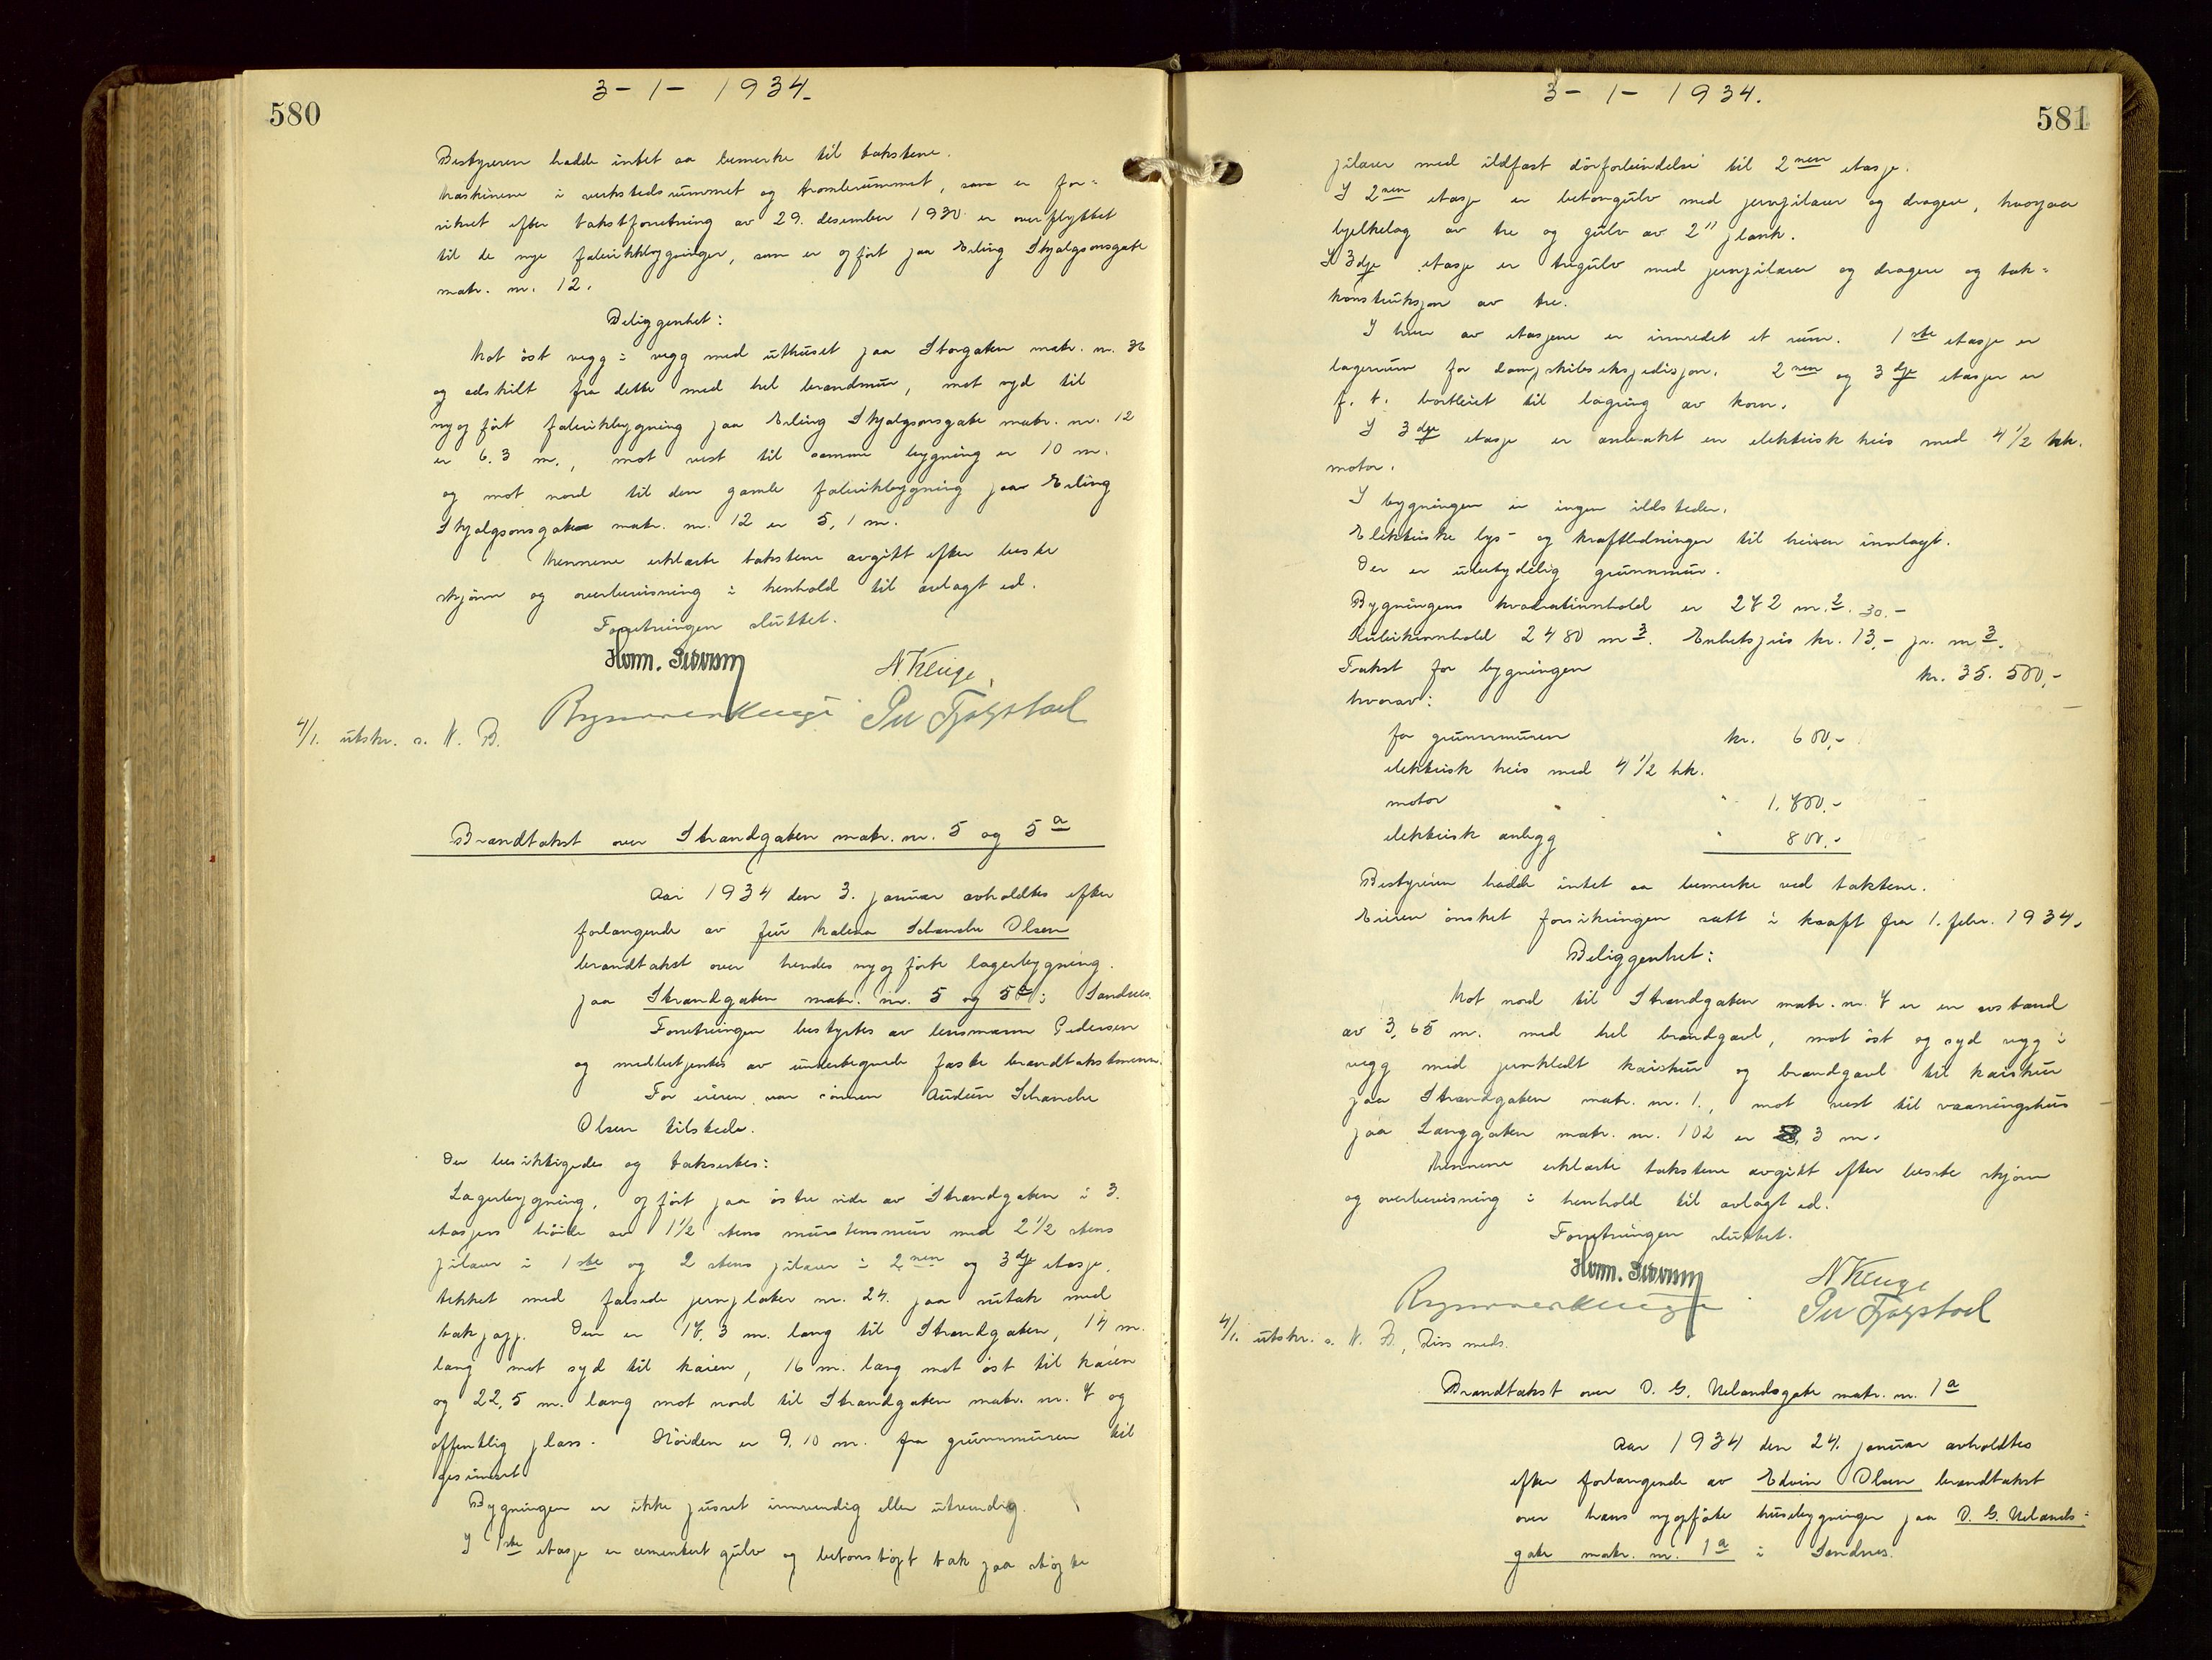 580
3 - 1 - 1934.
Bestyreren hadde intet aa bemerke til takstene.
Maskinene i verkstedsrummet og tromlerummet, som er for=
sikret efter takstforretning av 29. desember 1930 er overflyttet
til de nye fabrikkbygninger, som er opført paa Erling Skjalgsonsgate
matr. nr. 12.
Beliggenhet:
Mot øst vegg i vegg med uthuset paa Storgaten matr. nr. 36
og adskilt fra dette med hel brandmur, mot syd til
nyopført fabrikbygning paa Erling Skjalgsonsgate matr. nr. 12
er 6.3 m., mot vest til samme bygning er 10 m.
og mot nord til den gamle fabrikbygning paa Erling
Skjalgsonsgate matr. nr. 12 er 5,1 m.
Mennene erklærte takstene avgitt efter beste
skjønn og overbevisning i henhold til avlagt ed.
Forretningen sluttet.
N. Kluge.
4/1. utskr. s. N. B.
Brandtakst over Strandgaten matr. nr. 5 og 5 a
Aar 1934 den 3. januar avholdtes efter
forlangende av fru Malena Schanche Olsen
brandtakst over hendes nyopførte lagerbygning
paa Strandgaten matr. nr. 5 og 5 a i Sandnes.
Forretningen bestyrtes av lensmann Pedersen
og medbetjentes av undertegnede faste brandtakstmenn.
For eieren var sønnen Audun Schanche
Olsen tilstede.
Der besiktigedes og takseredes:
Lagerbygning, opført paa østre side av Strandgaten i 3.
etasjers høide av 1 1/2 stens murstensmur med 2 1/2 stens
pilarer i 1 ste og 2 stens pilarer i 2 nen og 3 dje etasje,
tekket med falsede jernplater nr. 24. paa sutak med
takpapp. Den er 17,3 m. lang til Strandgaten, 14 m.
lang mot syd til kaien, 16 m. lang mot øst til kaien
og 22,5 m. lang mot nord til Strandgaten matr. nr. 7 og
offentlig plass. Høiden er 9.10 m. fra grunnmuren til
gesimset
Bygningen er ikke pusset innvendig eller utvendig.
I 1 ste etasje er cementert gulv og betonstøpt tak paa støpte
581
3 - 1 - 1934.
pilarer med ildfast dørforbindelse til 2 nen etasje.
I 2 nen etasje er betongulv med jernpilarer og dragere, hvorpaa
bjelkelag av tre og gulv av 2" plank.
I 3 dje etasje er tregulv med jernpilarer og dragere og tak=
konstruksjon av tre.
I hver av etasjene er innredet et rum. 1 ste etasje er
lagerrum for dampskibsekspedisjon. 2 nen og 3 dje etasjer er
f. t. bortleiet til lagring av korn.
I 3 dje etasje er anbrakt en elektrisk heis med 4 1/2 hk.
motor.
I bygningen er ingen ildsteder.
Elektriske lys- og kraftledninger til heisen innlagt.
Der er ubetydelig grunnmur.
Bygningens kvadratinnhold er 272 m. 2. 30.-
Kubikinnhold 2480 m 3. Enhetspris kr. 13,- pr. m 3.
Takst for bygningen kr. 35.500,-
hvorav:
for grunnmuren kr. 600,-
elektrisk heis med 4 1/2 hk.
motor " 1.700,-
elektrisk anlegg " 800,-
Bestyreren hadde intet aa bemerke ved takstene.
Eieren ønsket forsikringen satt i kraft fra 1. febr. 1934.
Beliggenhet:
Mot nord til Strandgaten matr. nr. 7 er en avstand
av 3,65 m. med hel brandgavl, mot øst og syd vegg i
vegg med jernkledt kaiskur og brandgavl til kaiskur
paa Strandgaten matr. nr. 1., mot vest til vaaningshus
paa Langgaten matr. nr. 102 er 3 m.
Mennene erklærte takstene avgitt efter beste skjønn
og overbevisning i henhold til avlagt ed.
Forretningen sluttet.
N. Kluge
4/1. utskr. s. N. B., Riss meds.
Brandtakst over O. G. Uelandsgate matr. nr. 1 a
Aar 1934 den 24. januar avholdtes
efter forlangende av Edvin Olsen brandtakst
over hans nyopførte husebygninger paa O. G. Uelands=
gate matr. nr. 1 a i Sandnes.